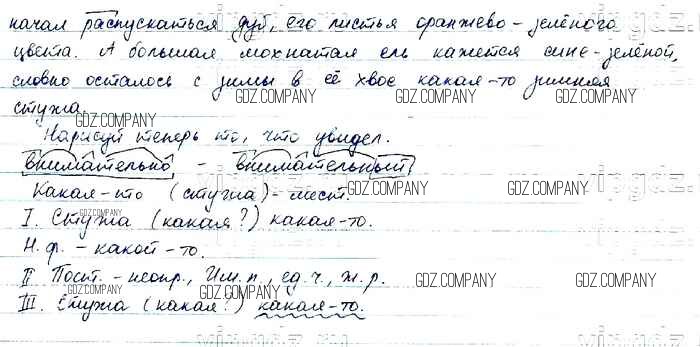 начал распускаться дуб, его листья оранжево-зелёного
цвета. А большая мохнатая ель кажется сине-зелёной,
словно осталось с зимы в её хвое какая-то зимняя
стужа.
GDZ.COMPANY GDZ.COMPANY GDZ.COMPANY GDZ.COMPANY
Нарисуй теперь то, что увидел.
внимательно - внимательный
Какая-то (стужа) - мест.
GDZ.COMPANY GDZ.COMPANY GDZ.COMPANY
I. Стужа (какая?) какая-то.
GDZ.COMPANY
Н.ф. - какой-то.
II Пост. - неопр., Им.п., ед.ч., ж.р.
GDZ.COMPANY GDZ.COMPANY
III. Стужа (какая?) какая-то.
GDZ.COMPANY GDZ.COMPANY